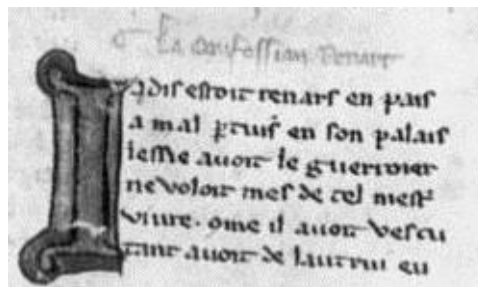 La confession renart
Iadis estoit renars en pais
a mal ꝑtuis en son palais
lessie auoit le guerroier
ne voloit mes de tel mest'
viure. ome il auoit vescu
tant auoit de lautrui eu